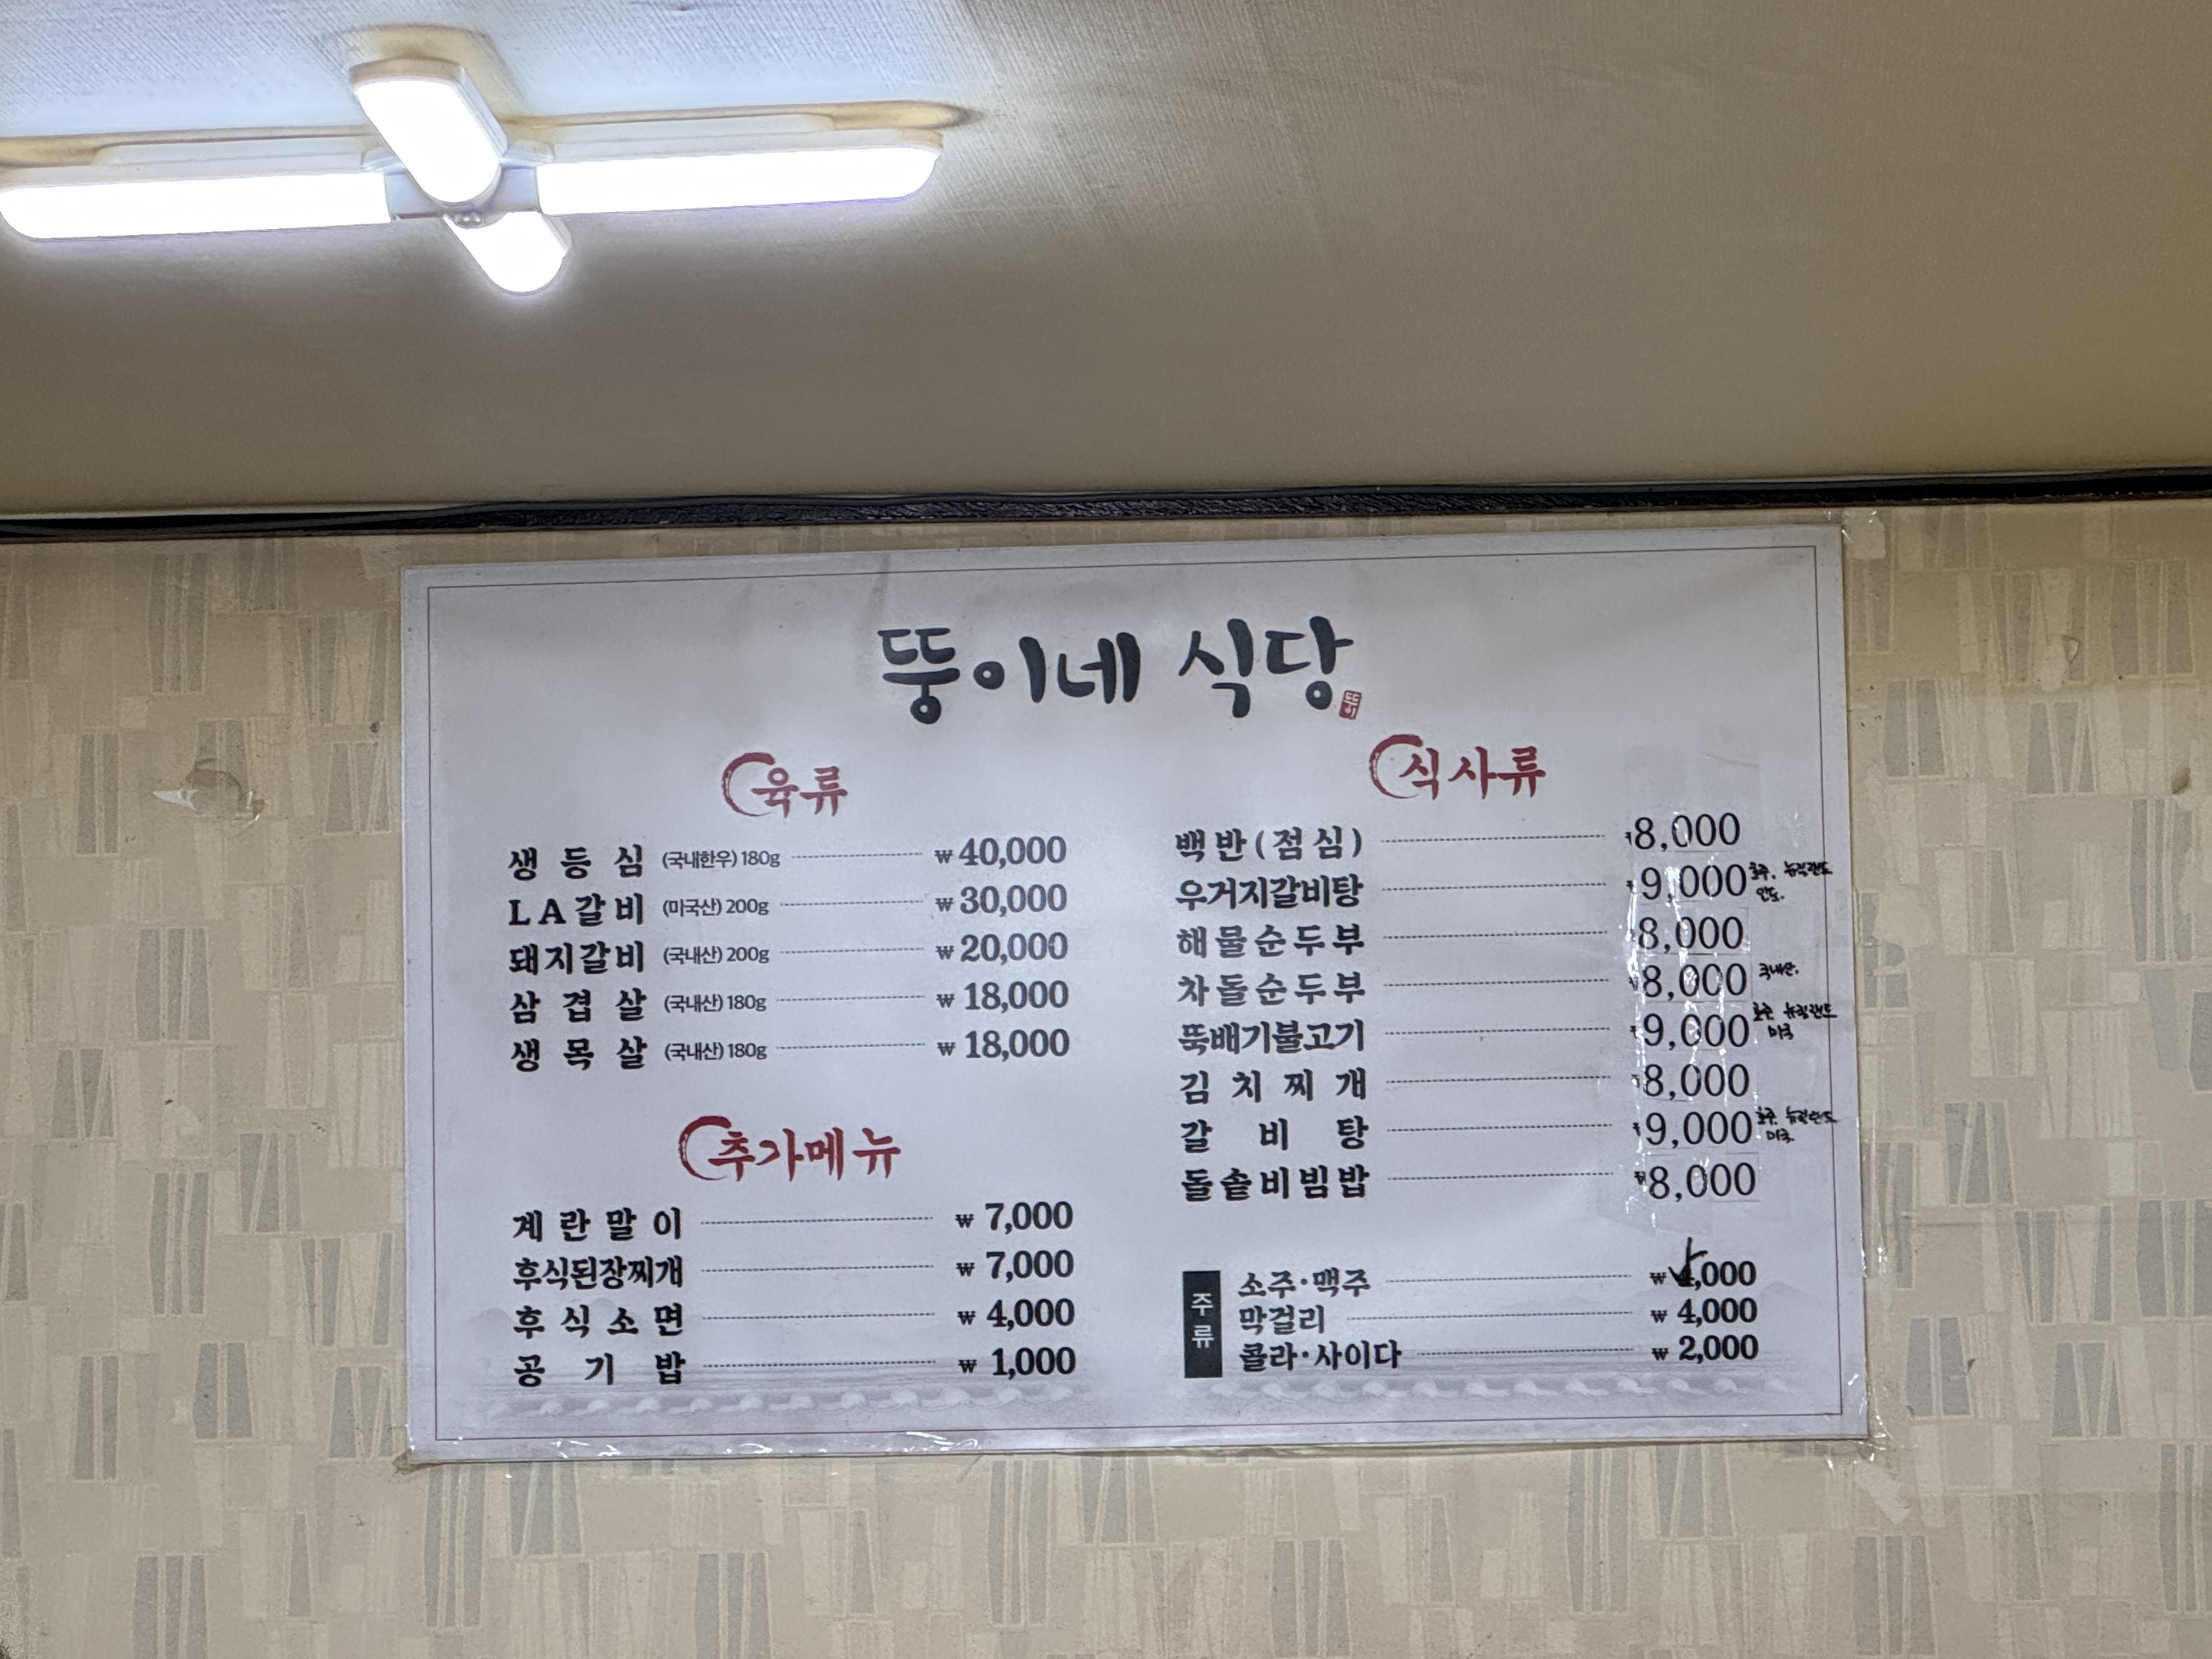 뚱이네 식당
뚱이
육류
생등심 (국내한우) 180g ₩ 40,000
LA갈비 (미국산) 200g ₩ 30,000
돼지갈비 (국내산) 200g ₩ 20,000
삼겹살 (국내산) 180g ₩ 18,000
생목살 (국내산) 180g ₩ 18,000
추가메뉴
계란말이 ₩ 7,000
후식된장찌개 ₩ 7,000
후식소면 ₩ 4,000
공기밥 ₩ 1,000
식사류
백반(점심) 8,000
우거지갈비탕 9,000 호주. 뉴질랜드
해물순두부 8,000
차돌순두부 8,000 국내산.
뚝배기불고기 9,000 호주. 뉴질랜드
미국
김치찌개 8,000
갈비탕 9,000 호주. 뉴질랜드
미국
돌솥비빔밥 ₩8,000
주류
소주·맥주 ₩ ,000
막걸리 ₩ 4,000
콜라·사이다 ₩ 2,000